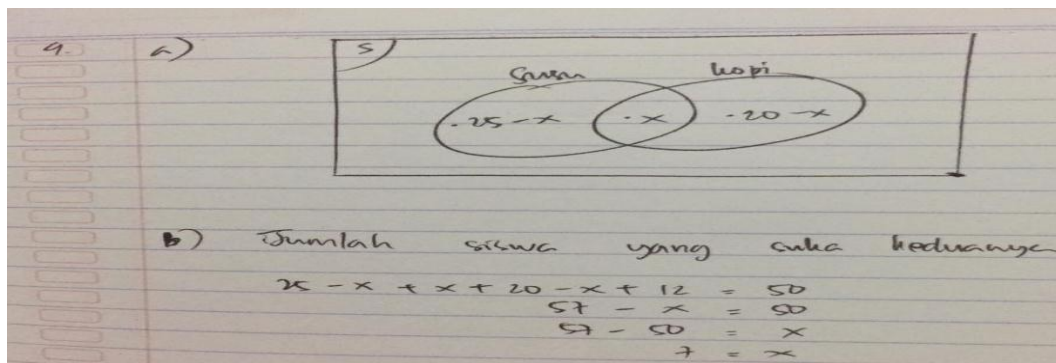 9. a) S
Susu kopi
. 25 - x . x . 20 - x
B) Jumlah siswa yang suka keduanya
25 - x + x + 20 - x + 12 = 50
57 - x = 50
57 - 50 = x
7 = x